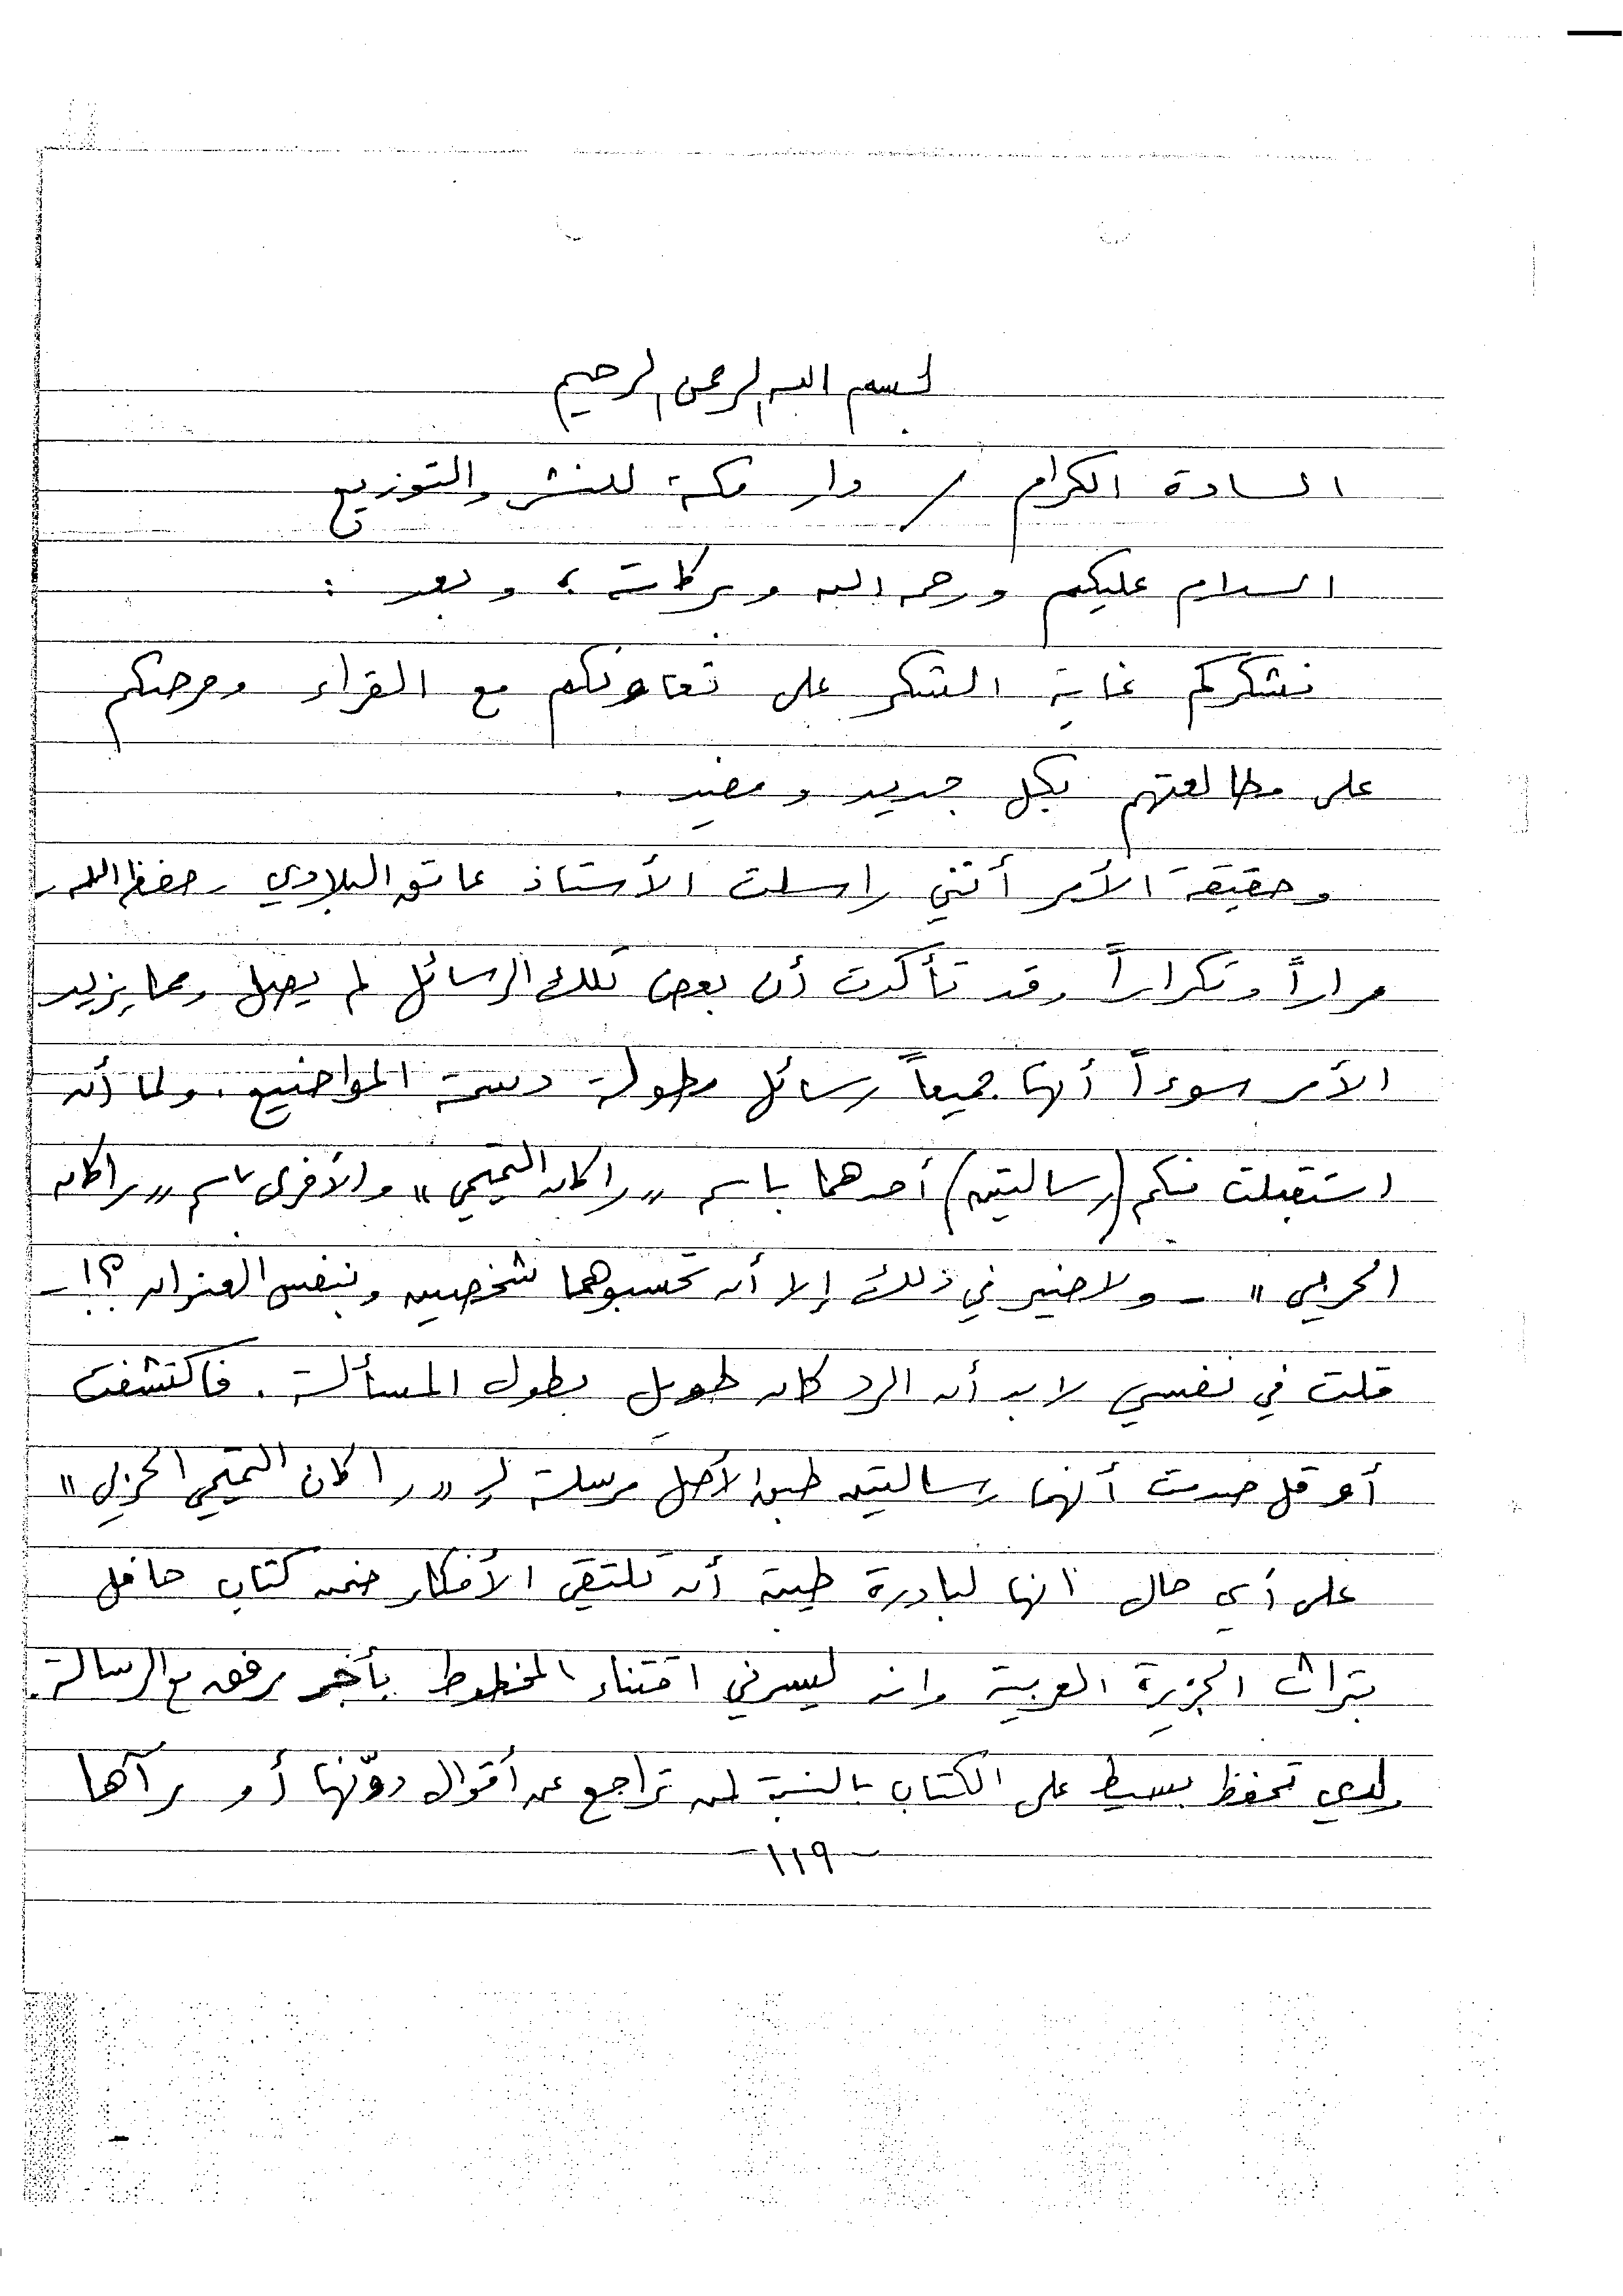 بسم الله الرحمن الرحيم
السادة الكرام / دار مكة للنشر والتوزيع
السلام عليكم ورحمه الله وبركاته ؛ وبعد :
نشكركم غاية الشكر على تعاونكم مع القراء وحرصكم
على مطالعتهم بكل جديد ومفيد .
وحقيقة الأمر أنني راسلت الأستاذ عاتق البلادي - حفظه الله -
مراراً وتكراراً وقد تأكدت أن بعض تلك الرسائل لم يصل ومما يزيد
الأمر سوءاً أنها جميعاً رسائل مطولة دسمة المواضيع . ولما أن
استقبلت منكم (رسالتين) أحدهما باسم "راكان التميمي" والأخرى باسم "راكان
الحربي" - ولا ضير في ذلك إلا أن تحسبوهما شخصين وبنفس العنوان ؟! -
قلت في نفسي لابد أن الرد كان طويل بطول المسألة . فاكتشفت
أو قل صدمت أنهما رسالتين طبق الأصل مرسلة لـ "راكان التميمي الحربي"
على أي حال انها لبادرة طيبة أن تلتقي الأفكار ضمن كتاب حافل
بتراث الجزيرة العربية وانه ليسرني اقتناء المخطوط بأجر مرفق مع الرسالة .
ولدي تحفظ بسيط على الكتاب بالنسبة لمن تراجع عن أقوال دوّنها أو رآها
- ١١٩ -